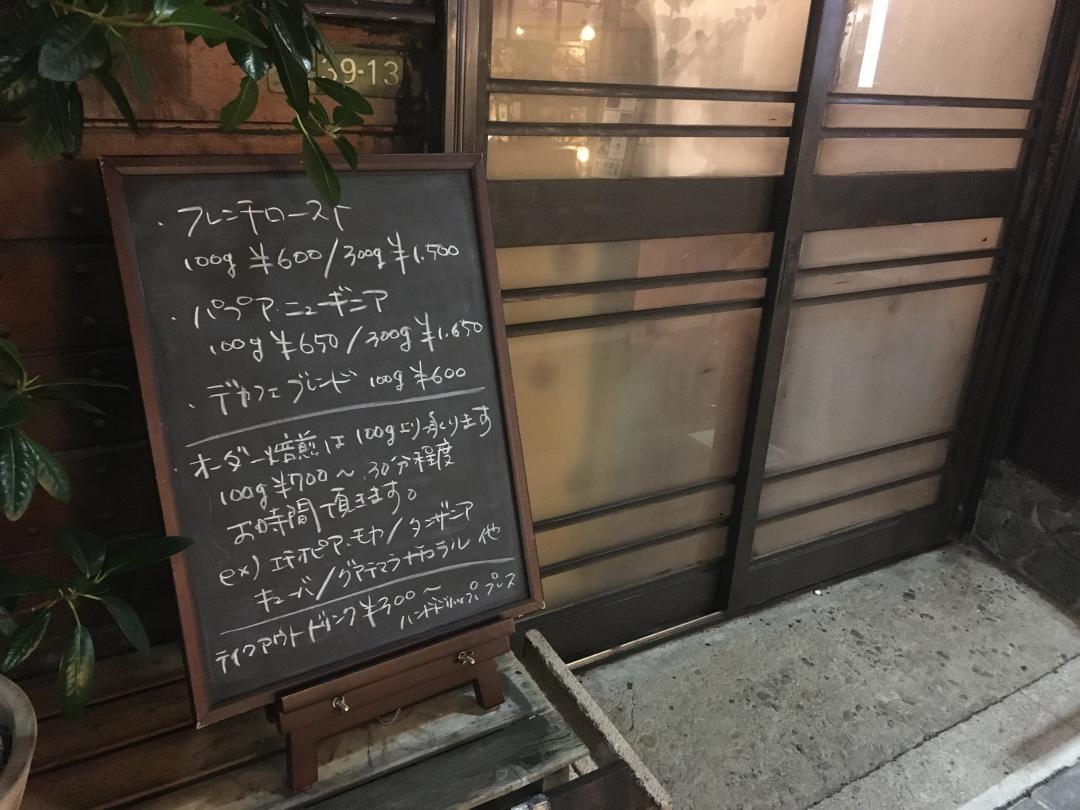 39-13
・フレンチロースト
100g ¥600/300g ¥1.500
・パプア.ニューギニア
100g ¥650/300g ¥1.650
・デカフェブレンド 100g ¥600
・オーダー焙煎は100gより承ります
100g ¥700〜 30分程度
お時間頂きます。
ex) エチオピア.モカ/タンザニア
キューバ/グアテマラナチュラル 他
テイクアウトドリンク¥300〜
ハンドドリップ、プレス